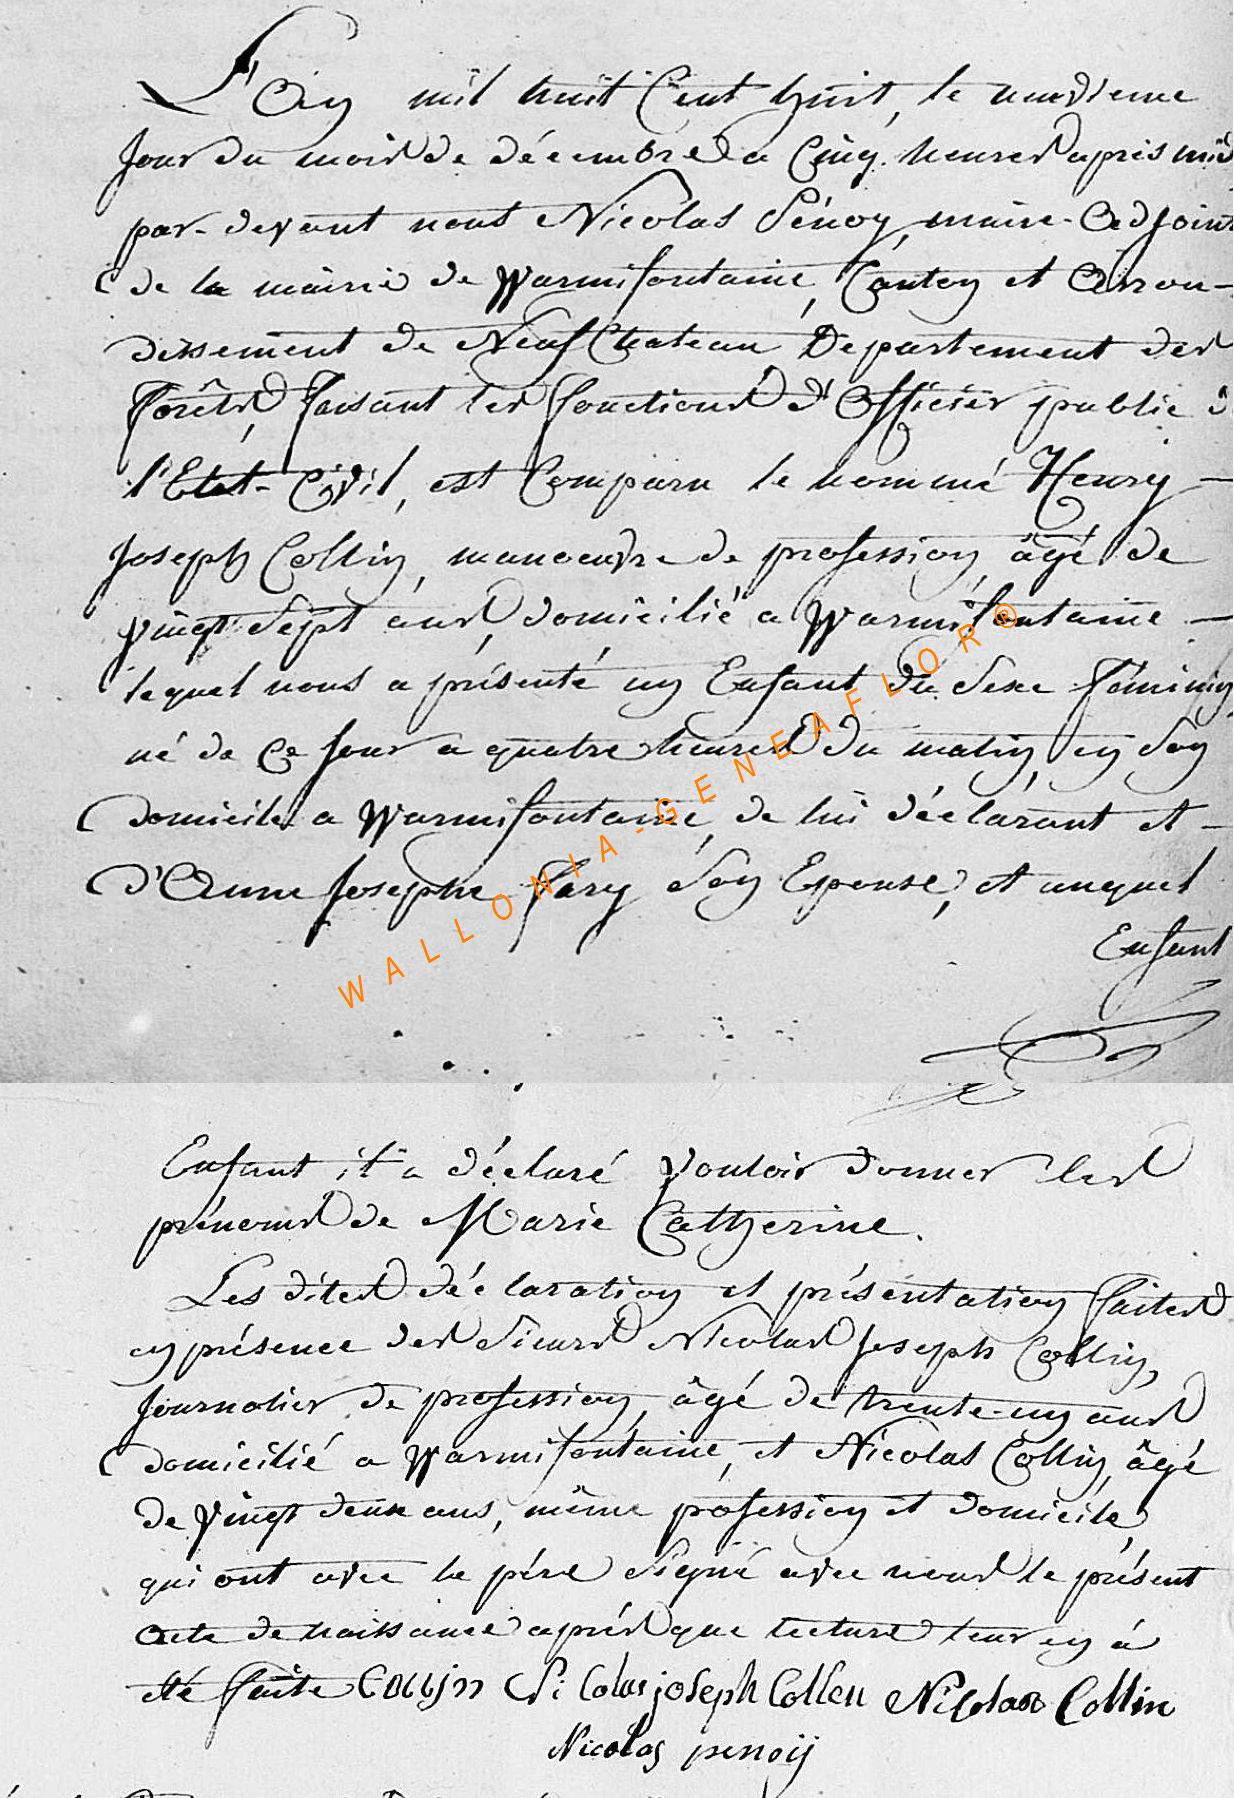 L'An mil huit Cent huit, le neuvieme
Jour du mois de décembre a Cinq heures après midi
par-devant nous Nicolas Pénoy, maire-Adjoint
de la mairie de Warmifontaine, Canton et Arron-
dissement de NeufChateau Département des
Forêts, faisant les fonctions d'Officier public de
l'Etat-Civil, est Comparu le nommé Henry
Joseph Collin, manoeuvre de profession, âgé de
vingt Sept ans, domicilié a Warmifontaine
lequel nous a présenté un Enfant du Sexe Féminin
né de Ce Jour a quatre heures du matin, en Son
domicile a Warmifontaine, de lui déclarant et
d'Anne Josephe Jary Son Epouse, et auquel
Enfant
Enfant il a déclaré vouloir donner les
prénoms de Marie Catherine.
Les dites déclaration et présentation faites
en présence des Sieurs Nicolas Joseph Collin,
Journalier de profession, âgé de trente-un ans
domicilié a Warmifontaine, et Nicolas Collin, âgé
de Vingt deux ans, même profession et domicile,
qui ont avec le père Signé avec nous le présent
Acte de naissance après que lecture leur en à
été faite Collin Nicolas joseph Collen Nicolas Collin
Nicolas penoij
WALLONIA-GENEAFLOR®